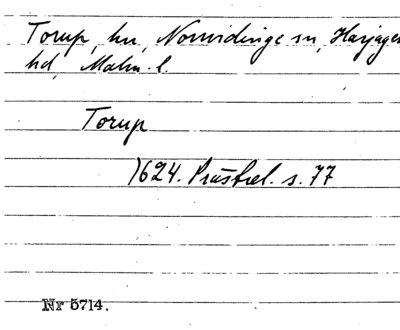 Torup, hn, Norrvidinge sn, Harjagers
hd, Malm. l.
Torup
1624. Prästrel. s. 77
Nr 5714.